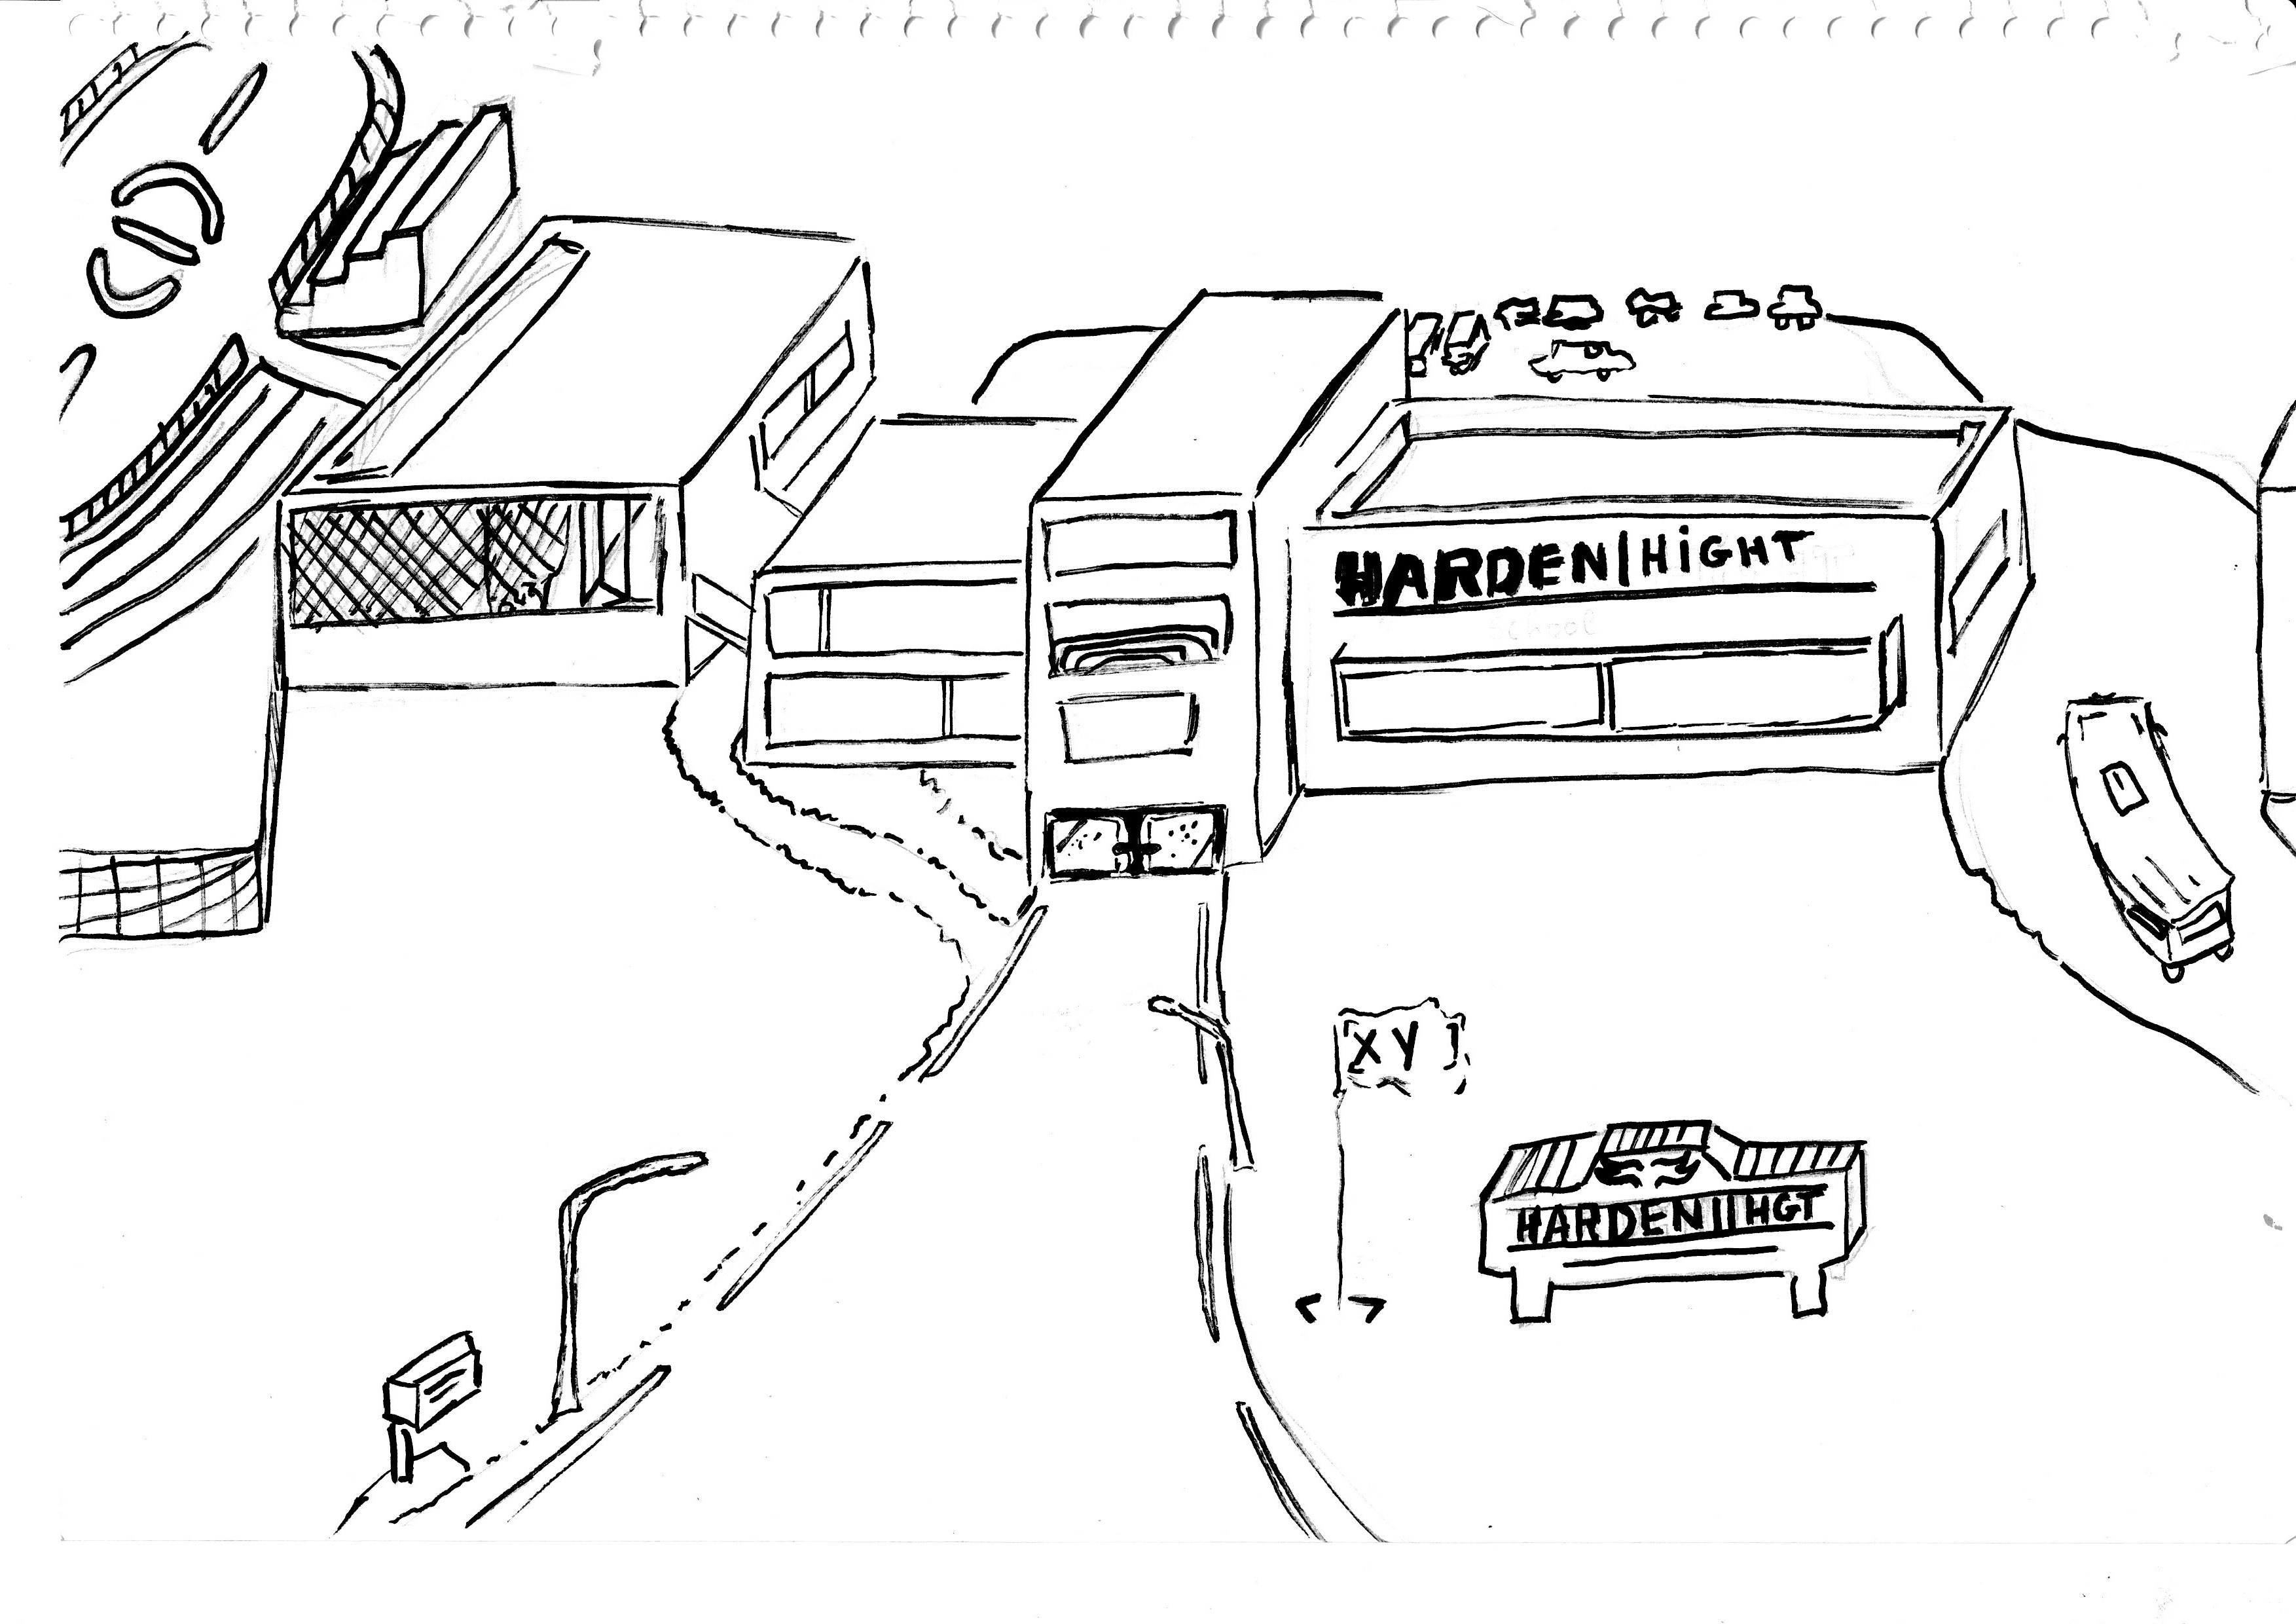 HARDEN|HiGHT
School
[XY]
HARDEN||HGT